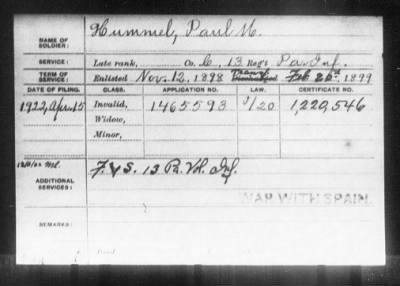 NAME OF SOLDIER: Hummel, Paul M.
SERVICE: Late rank, Co. C, 13 Reg't Pa. Inf.
TERM OF SERVICE: Enlisted Nov. 12, 1898 Discharged Feb 26th, 1899
DATE OF FILING. CLASS. APPLICATION NO. LAW. CERTIFICATE NO.
1922, Apr. 15 Invalid, 1465593 1,220,546
Widow,
Minor,
ADDITIONAL SERVICES: F. & S. 13 Pa. Vol. Inf.
WAR WITH SPAIN.
REMARKS: